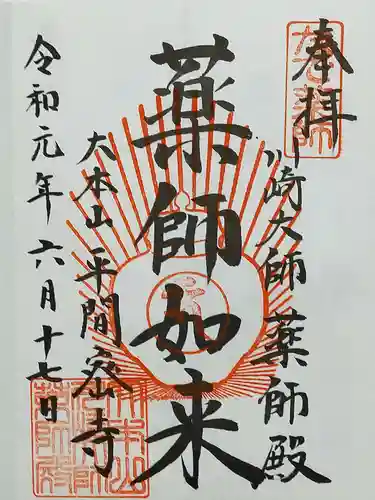 奉拝
川崎大師薬師殿
薬師如来
大本山平間寺
令和元年六月十七日